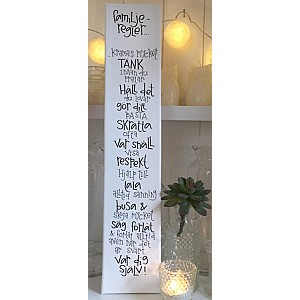 familje-
regler...
...kramas mycket
TÄNK
innan du
pratar
Håll det
du lovar
gör ditt
BÄSTA
SKRATTA
ofta
var snäll
visa
respekt
HJÄLP TILL
tala
alltid sanning
busa &
sjung mycket
säg förlåt
& förlåt alltid
även när det
är svårt
var dig
själv!